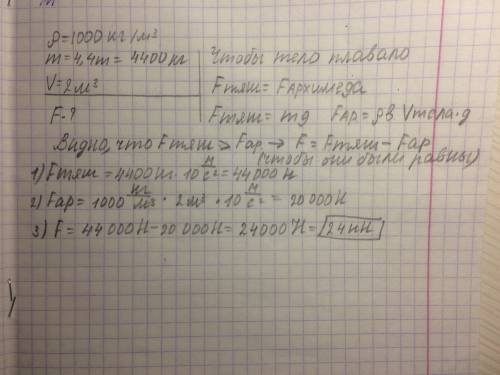 ρ=1000 кг/м³
m=4,4т=4400кг
V=2м³
F-?
Чтобы тело плавало
Fтяж=FАрхимеда
Fтяж=mg Fар=ρв Vтела·g
Видно, что Fтяж>Fар→F=Fтяж-Fар
(чтобы они были равны)
1) Fтяж=4400кг·10 м/с²=44000 Н
2) Fар=1000 кг/м³·2м³·10 м/с²=20 000Н
3) F=44 000Н-20 000Н=24000Н=24кН